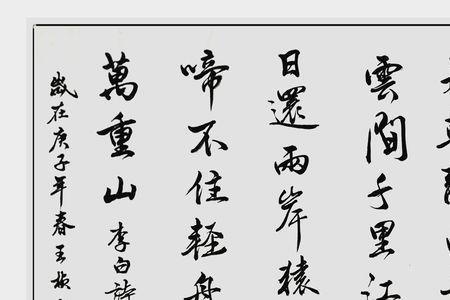 雲間千里江
日還兩岸猿
啼不住輕舟
萬重山 李白詩
歲在庚子年春王楨